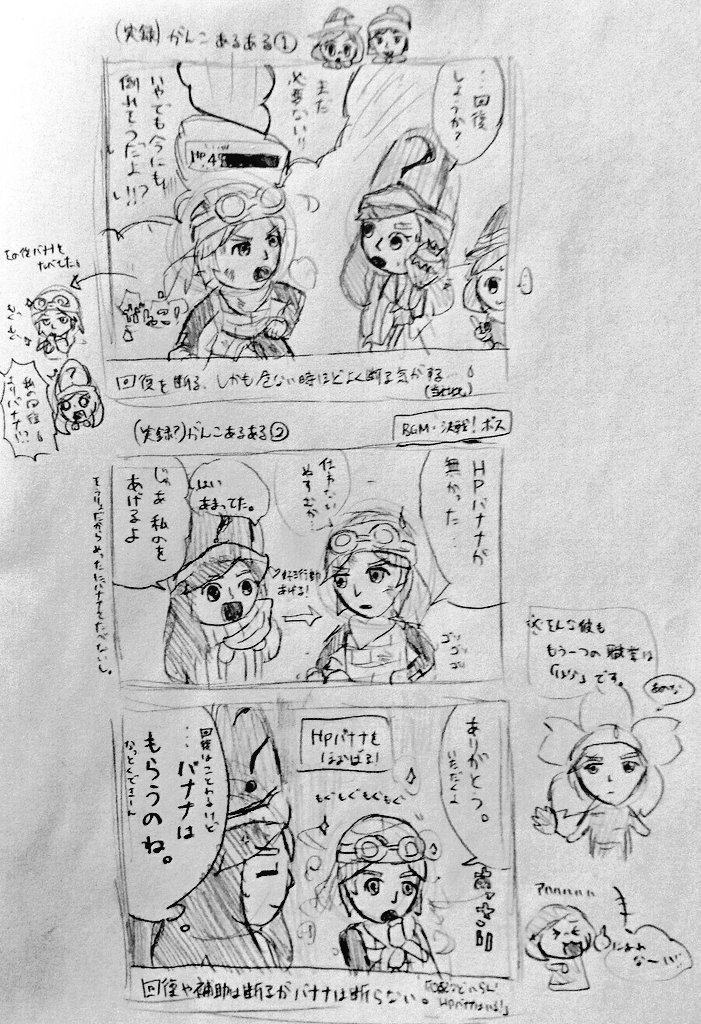 (実録) がんこあるある①
…回復
しようか?
まだ
必要ない!!
いやでも今にも
倒れそうだよ
!!?
HP.4
がんこ!
この後バナナを
たべてた。
私の回復
よりバナナ!?
回復を断る、しかも危ない時ほどよく断る気がする…。
(実録?)がんこあるある②
BGM・決戦!ボス
HPバナナが
無かった…
仕方ない、
やすむか…
はい
あまってた。
じゃあ私のを
あげるよ
あげる!
ゴソ
ゴソ
ゴソ
※そんな彼も
もう一つの職業は
「はな」です。
ありがとう。
いただくよ
HPバナナを
ほおばる!
もぐもぐもぐもぐ
あっさり
回復はことわるけど
…バナナは
もらうのね。
なっとくできなーい
回復や補助は断るがバナナは断らない。
HPバナナはいる!」